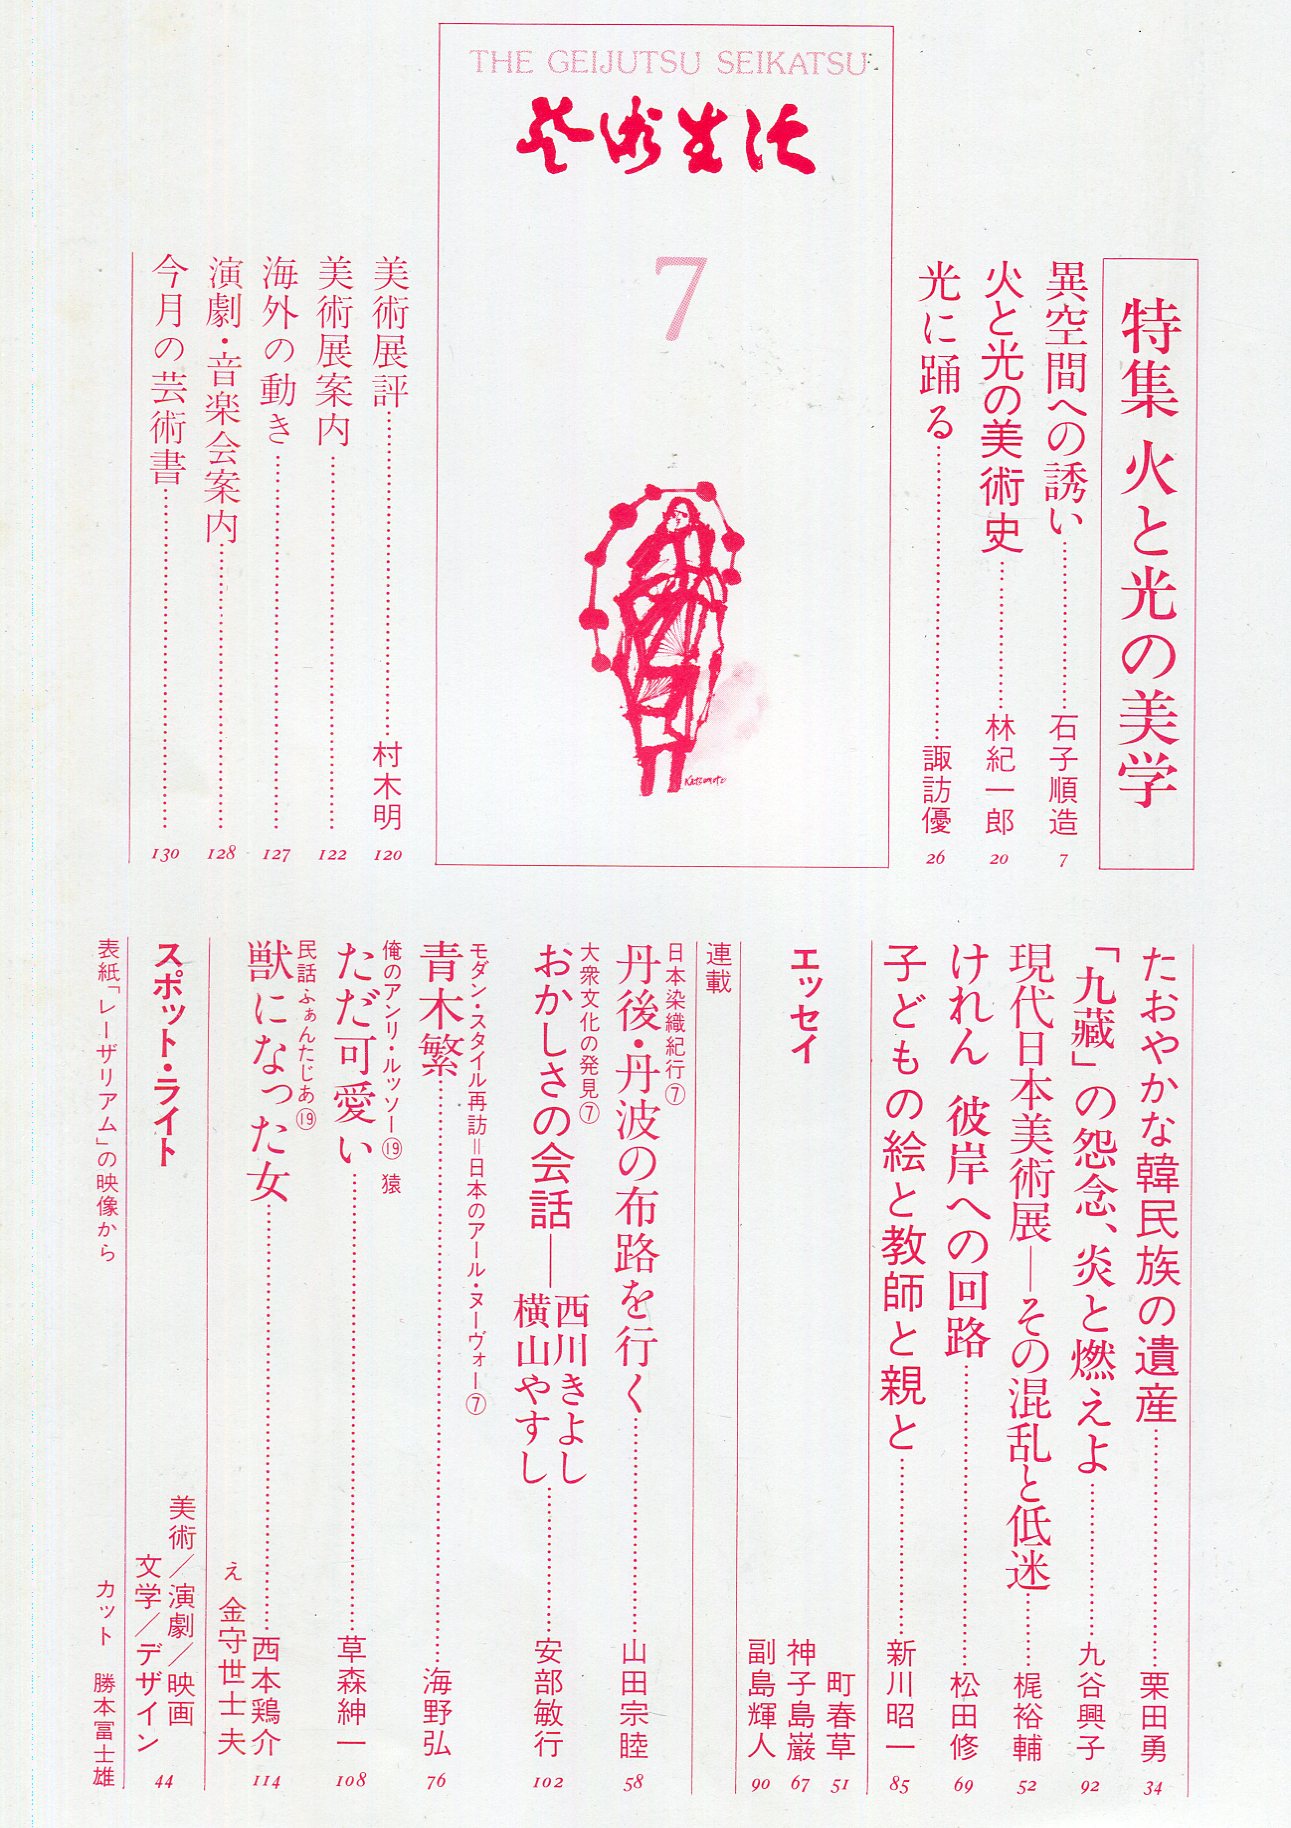 THE GEIJUTSU SEIKATSU
芸術生活
7
Katsumoto
特集 火と光の美学
異空間への誘い……石子順造 7
火と光の美術史……林紀一郎 20
光に踊る……諏訪優 26
美術展評……村木明 120
美術展案内……122
海外の動き……127
演劇・音楽会案内……128
今月の芸術書……130
たおやかな韓民族の遺産……栗田勇 34
「九蔵」の怨念、炎と燃えよ……九谷興子 92
現代日本美術展―その混乱と低迷……梶裕輔 52
けれん 彼岸への回路……松田修 69
子どもの絵と教師と親と……新川昭一 85
エッセイ
町春草 51
神子島巌 67
副島輝人 90
連載
日本染織紀行⑦
丹後・丹波の布路を行く……山田宗睦 58
大衆文化の発見⑦
おかしさの会話―西川きよし
横山やすし……安部敏行 102
モダン・スタイル再訪＝日本のアール・ヌーヴォー⑦
青木繁……海野弘 76
俺のアンリ・ルッソー⑲ 猿
ただ可愛い……草森紳一 108
民話ふぁんたじあ⑲
獣になった女……西本鶏介 114
え 金守世士夫
スポット・ライト
美術／演劇／映画
文学／デザイン 44
表紙「レーザリアム」の映像から
カット 勝本冨士雄